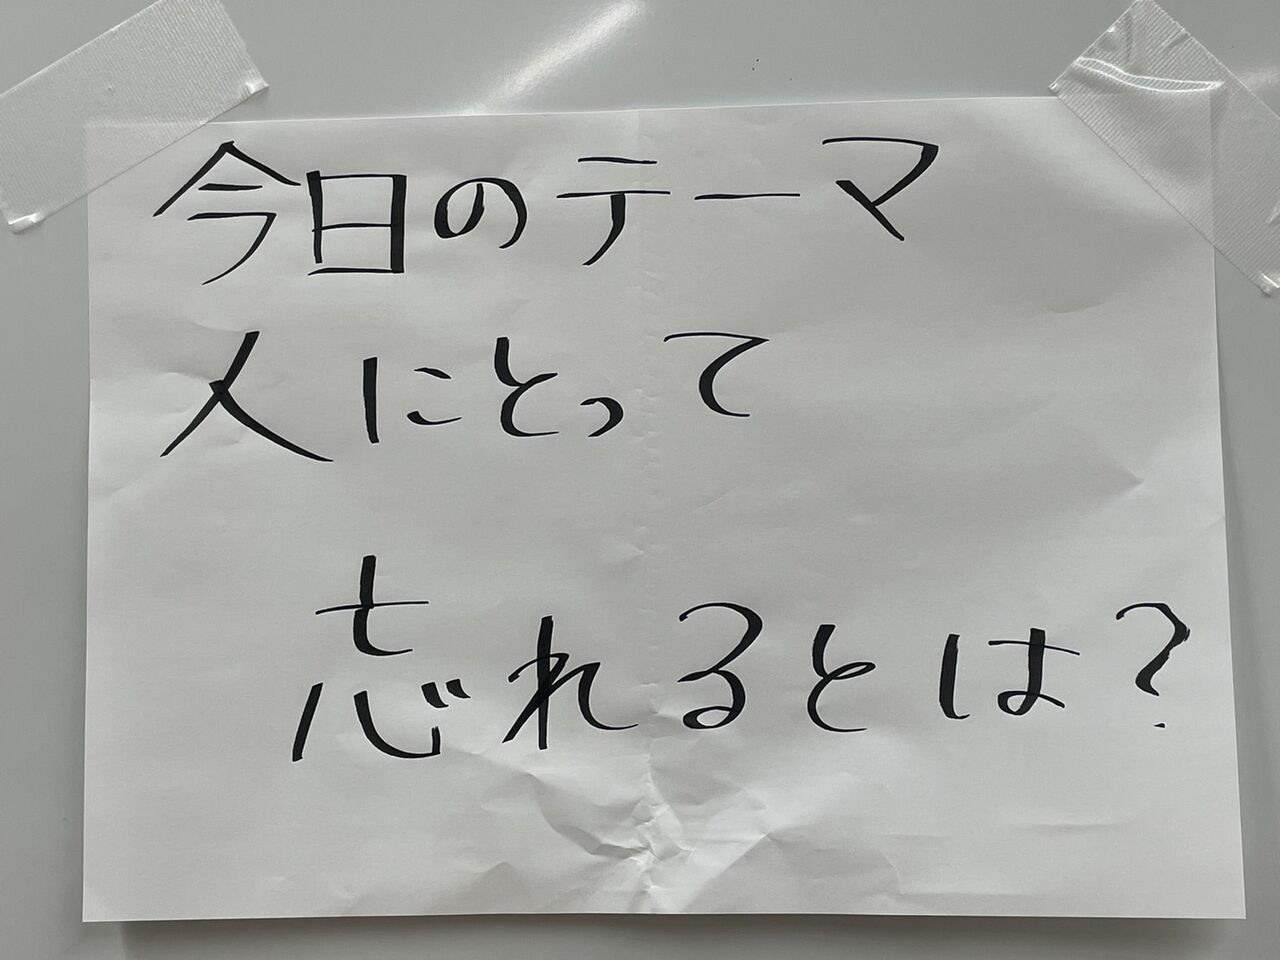 今日のテーマ
人にとって
忘れるとは?